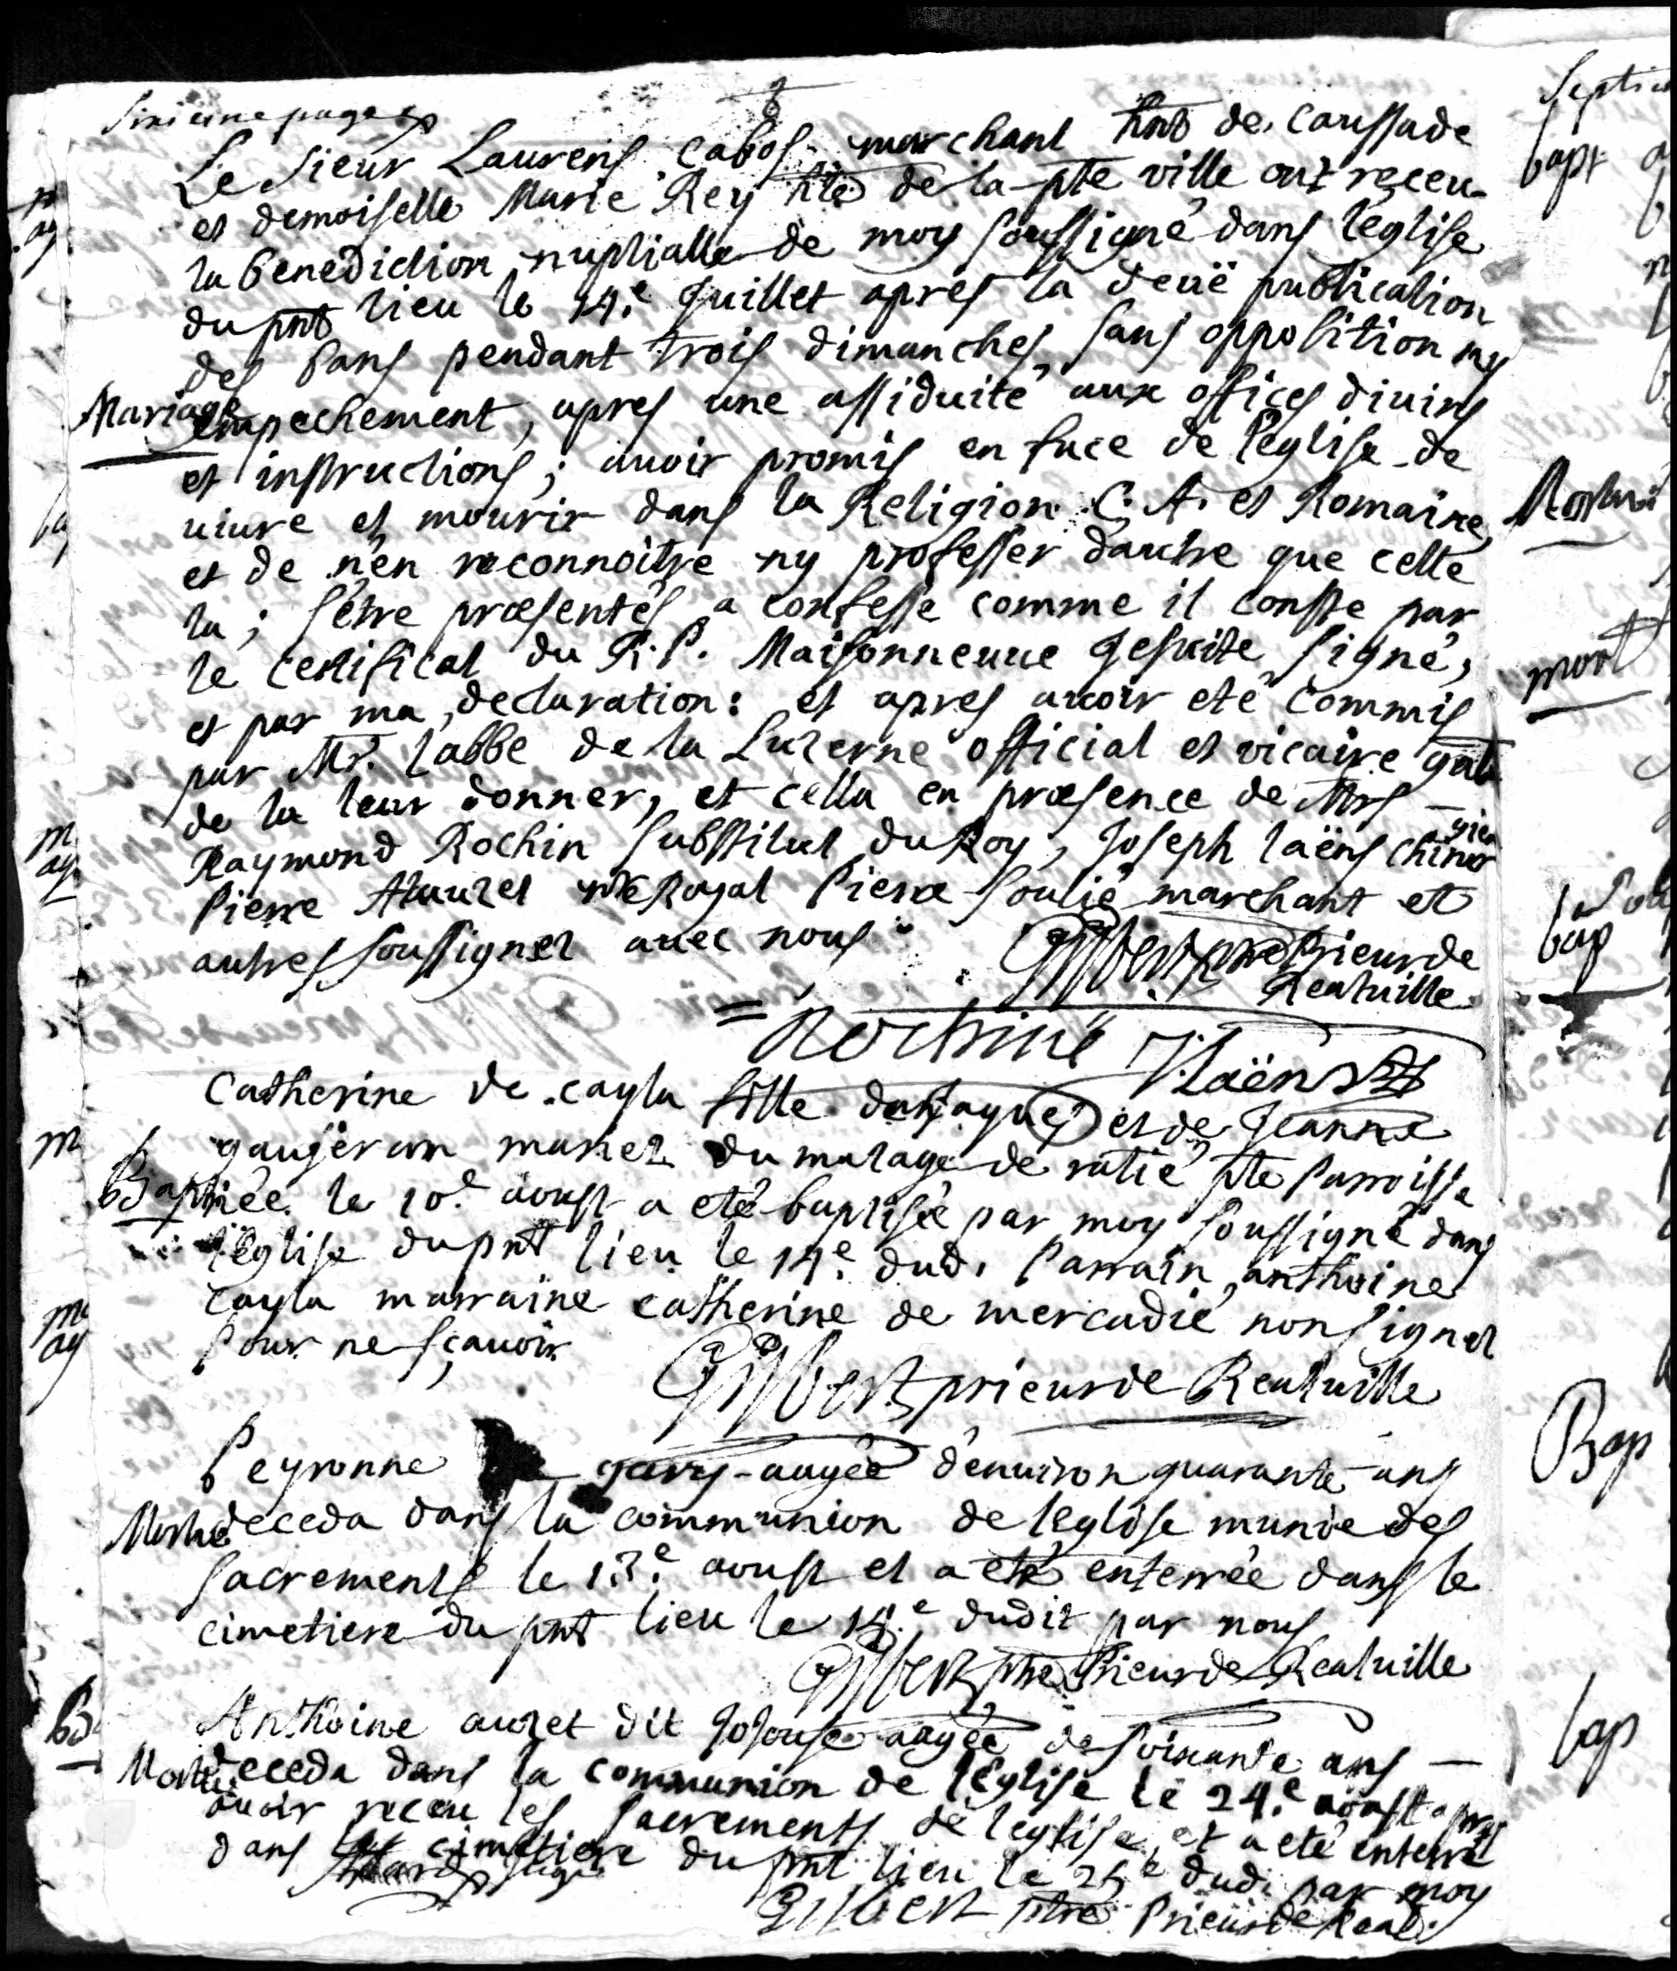 Sixieme page
Le Sieur Laurens Cabos marchant hnt de Caussade
et demoiselle Marie Rey hte de la pte ville ont receu
la benediction nuptialle de moy soussigné dans l'eglise
du pnt lieu le 14.e Juillet apres la deuë publication
des bans pendant trois dimanches, sans oppolition ny
Mariage
empechement, apres une assiduité aux offices divins
et instructions; avoir promis en face de l'eglise de
vivre et mourir dans la Religion C. A. et Romaine,
et de n'en reconnoître ny professer d'autre que celle
la; s'être præsentés a confesse comme il conste par
le certificat du R. P. Maisonneuve Jesuite signé,
et par ma declaration: et apres avoir eté commis
par Mr. l'abbé de la Luzerne official et vicaire gñal
de la leur donner, et cella en præsence de Mrs
Raymond Rochin Substitut du Roy, Joseph Laëns chirurgien
Pierre Aluzet nre Royal Pierre Soulié marchant et
autres soussignez avec nous
Gilbert pre Prieur de
Realville
Rochin J. Laëns
Catherine de cayla fille de Jaques et de Jeanne
gaujeran mariez du masage de ratié pte Parroisse
Bapt
née le 10.e aoust a eté baptisée par moy soussigné dans
l'église du pnt lieu le 14.e dud. Parrain anthoine
Cayla marraine catherine de mercadié non signez
Pour ne sçavoir
Gilbert prieur de Realville
Peyronne gary augée d'environ quarante ans
Mortuë
deceda dans la communion de l'eglise munie des
sacrements le 13.e aoust et a eté enterrée dans le
cimetiere du pnt lieu le 14.e dudit par nous
Gilbert pre Prieur de Realville
Anthoine auzet dit Jojouse augée de soixante ans
Mortuë
deceda dans la communion de l'église le 24.e aoust apres
avoir receu les sacrements de l'eglise, et a eté enterré
dans le cimetiere du pnt lieu le 25e dud. par moy
Gilbert ptre Prieur de Real.